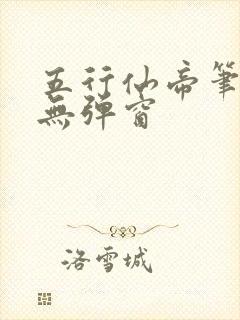 五行仙帝筆
無彈窗
洛雪城